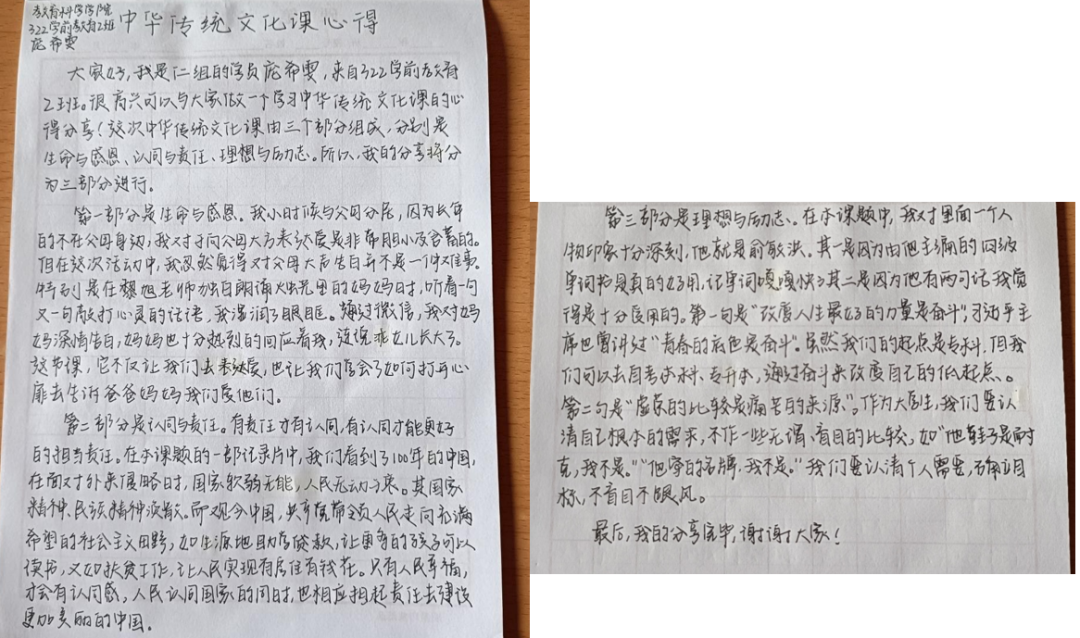 教育科学学院
322学前教育2班
庞希雯
中华传统文化课心得
大家好,我是仁组的学员庞希雯,来自322学前教育
2班。很高兴可以与大家做一个学习中华传统文化课的心
得分享!这次中华传统文化课由三个部分组成,分别是
生命与感恩、认同与责任、理想与励志。所以,我的分享将分
为三部分进行。
第一部分是生命与感恩。我小时候与父母分居,因为长年
的不在父母身边,我对于向父母大方表达爱是非常胆小及吝啬的。
但在这次活动中,我忽然觉得对父母大声告白并不是一件难事。
特别是在黎旭老师独自朗诵火光里的妈妈时,听着一句
又一句敲打心灵的话语,我湿润了眼眶。通过微信,我对妈
妈深情告白,妈妈也十分热烈的回应着我,连说女儿长大了。
这节课,它不仅让我们去表达爱,也让我们学会了如何打开心
扉去告诉爸爸妈妈我们爱他们。
第二部分是认同与责任。有责任才有认同,有认同才能更好
的担当责任。在本课题的一部记录片中,我们看到了100年的中国,
在面对外来侵略时,国家软弱无能,人民无动于衷。其国家
精神、民族精神涣散。而观今中国,共享富带领人民走向充满
希望的社会主义田野,如生源地助学贷款,让更多的孩子可以
读书,又如扶贫工作,让人民实现有居住有钱花。只有人民幸福,
才会有认同感,人民认同国家的同时,也相应担起责任去建设
更加美丽的中国。
第三部分是理想与励志。在本课题中,我对里面一个人
物印象十分深刻,他就是俞敏洪。其一是因为由他主编的四级
单词书是真的好用,记单词嘎嘎快;其二是因为他有两句话我觉
得是十分受用的。第一句是“改变人生最好的力量是奋斗”,习近平主
席也曾讲过“青春的底色是奋斗”。虽然我们的起点是专科,但我
们可以去自考本科、专升本,通过奋斗来改变自己的低起点。
第二句是“虚荣的比较是痛苦的来源”。作为大学生,我们要认
清自己根本的需求,不作一些无谓、盲目的比较。如“他鞋子是耐
克,我不是。”“他穿的名牌,我不是。”我们要认清个人需要,确立目
标,不盲目不跟风。
最后,我的分享完毕,谢谢大家!